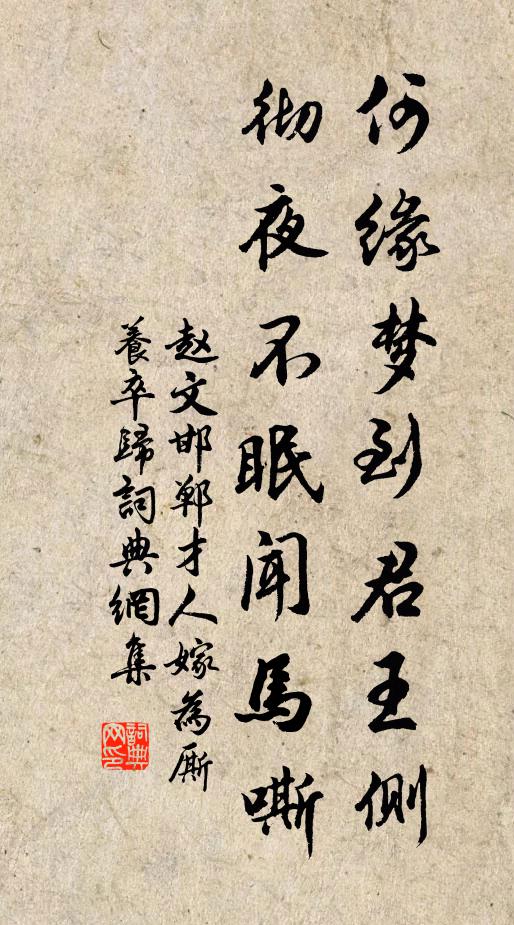 何缘梦到君王侧
彻夜不眠闻马嘶
赵文邯郸才人嫁為厮
養卒歸詞典網集
詞典
网印